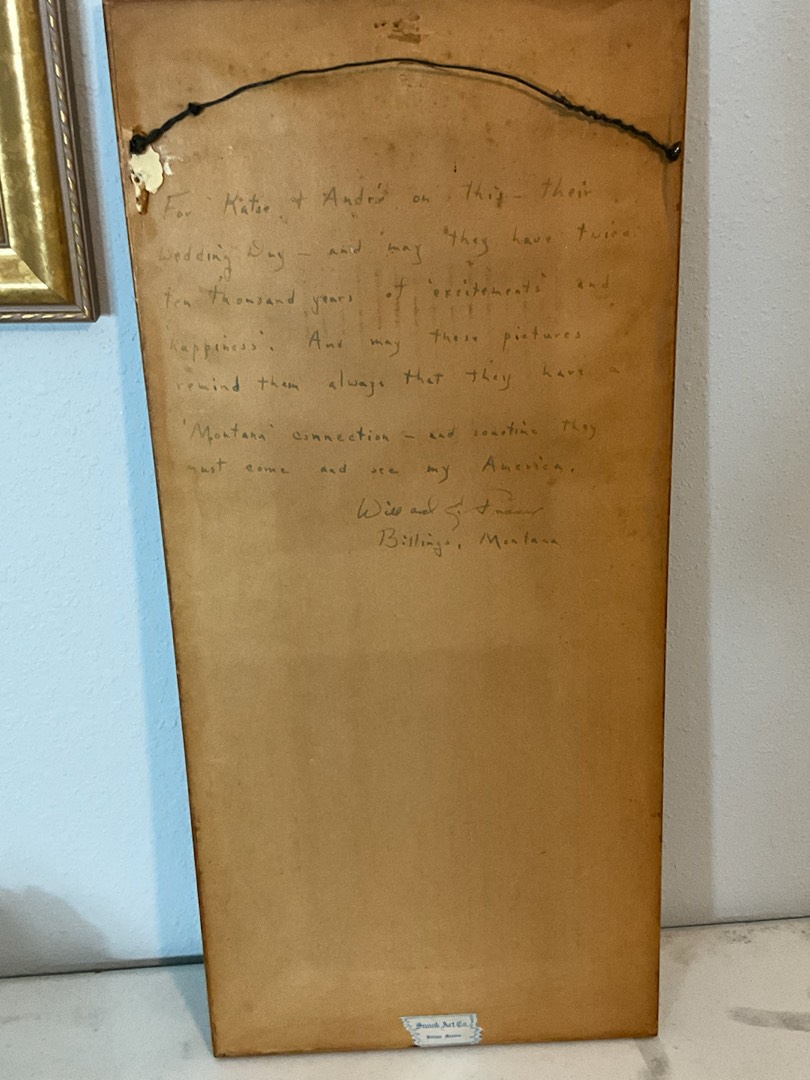 For Katie & André on this - their
Wedding Day - and may they have twice
ten thousand years of 'excitements' and
happiness'. And may these pictures
remind them always that they have a
'Montana' connection - and sometime they
must come and see my America.
Willard E. Fraser
Billings, Montana
Snook Art Co.
Billings, Montana